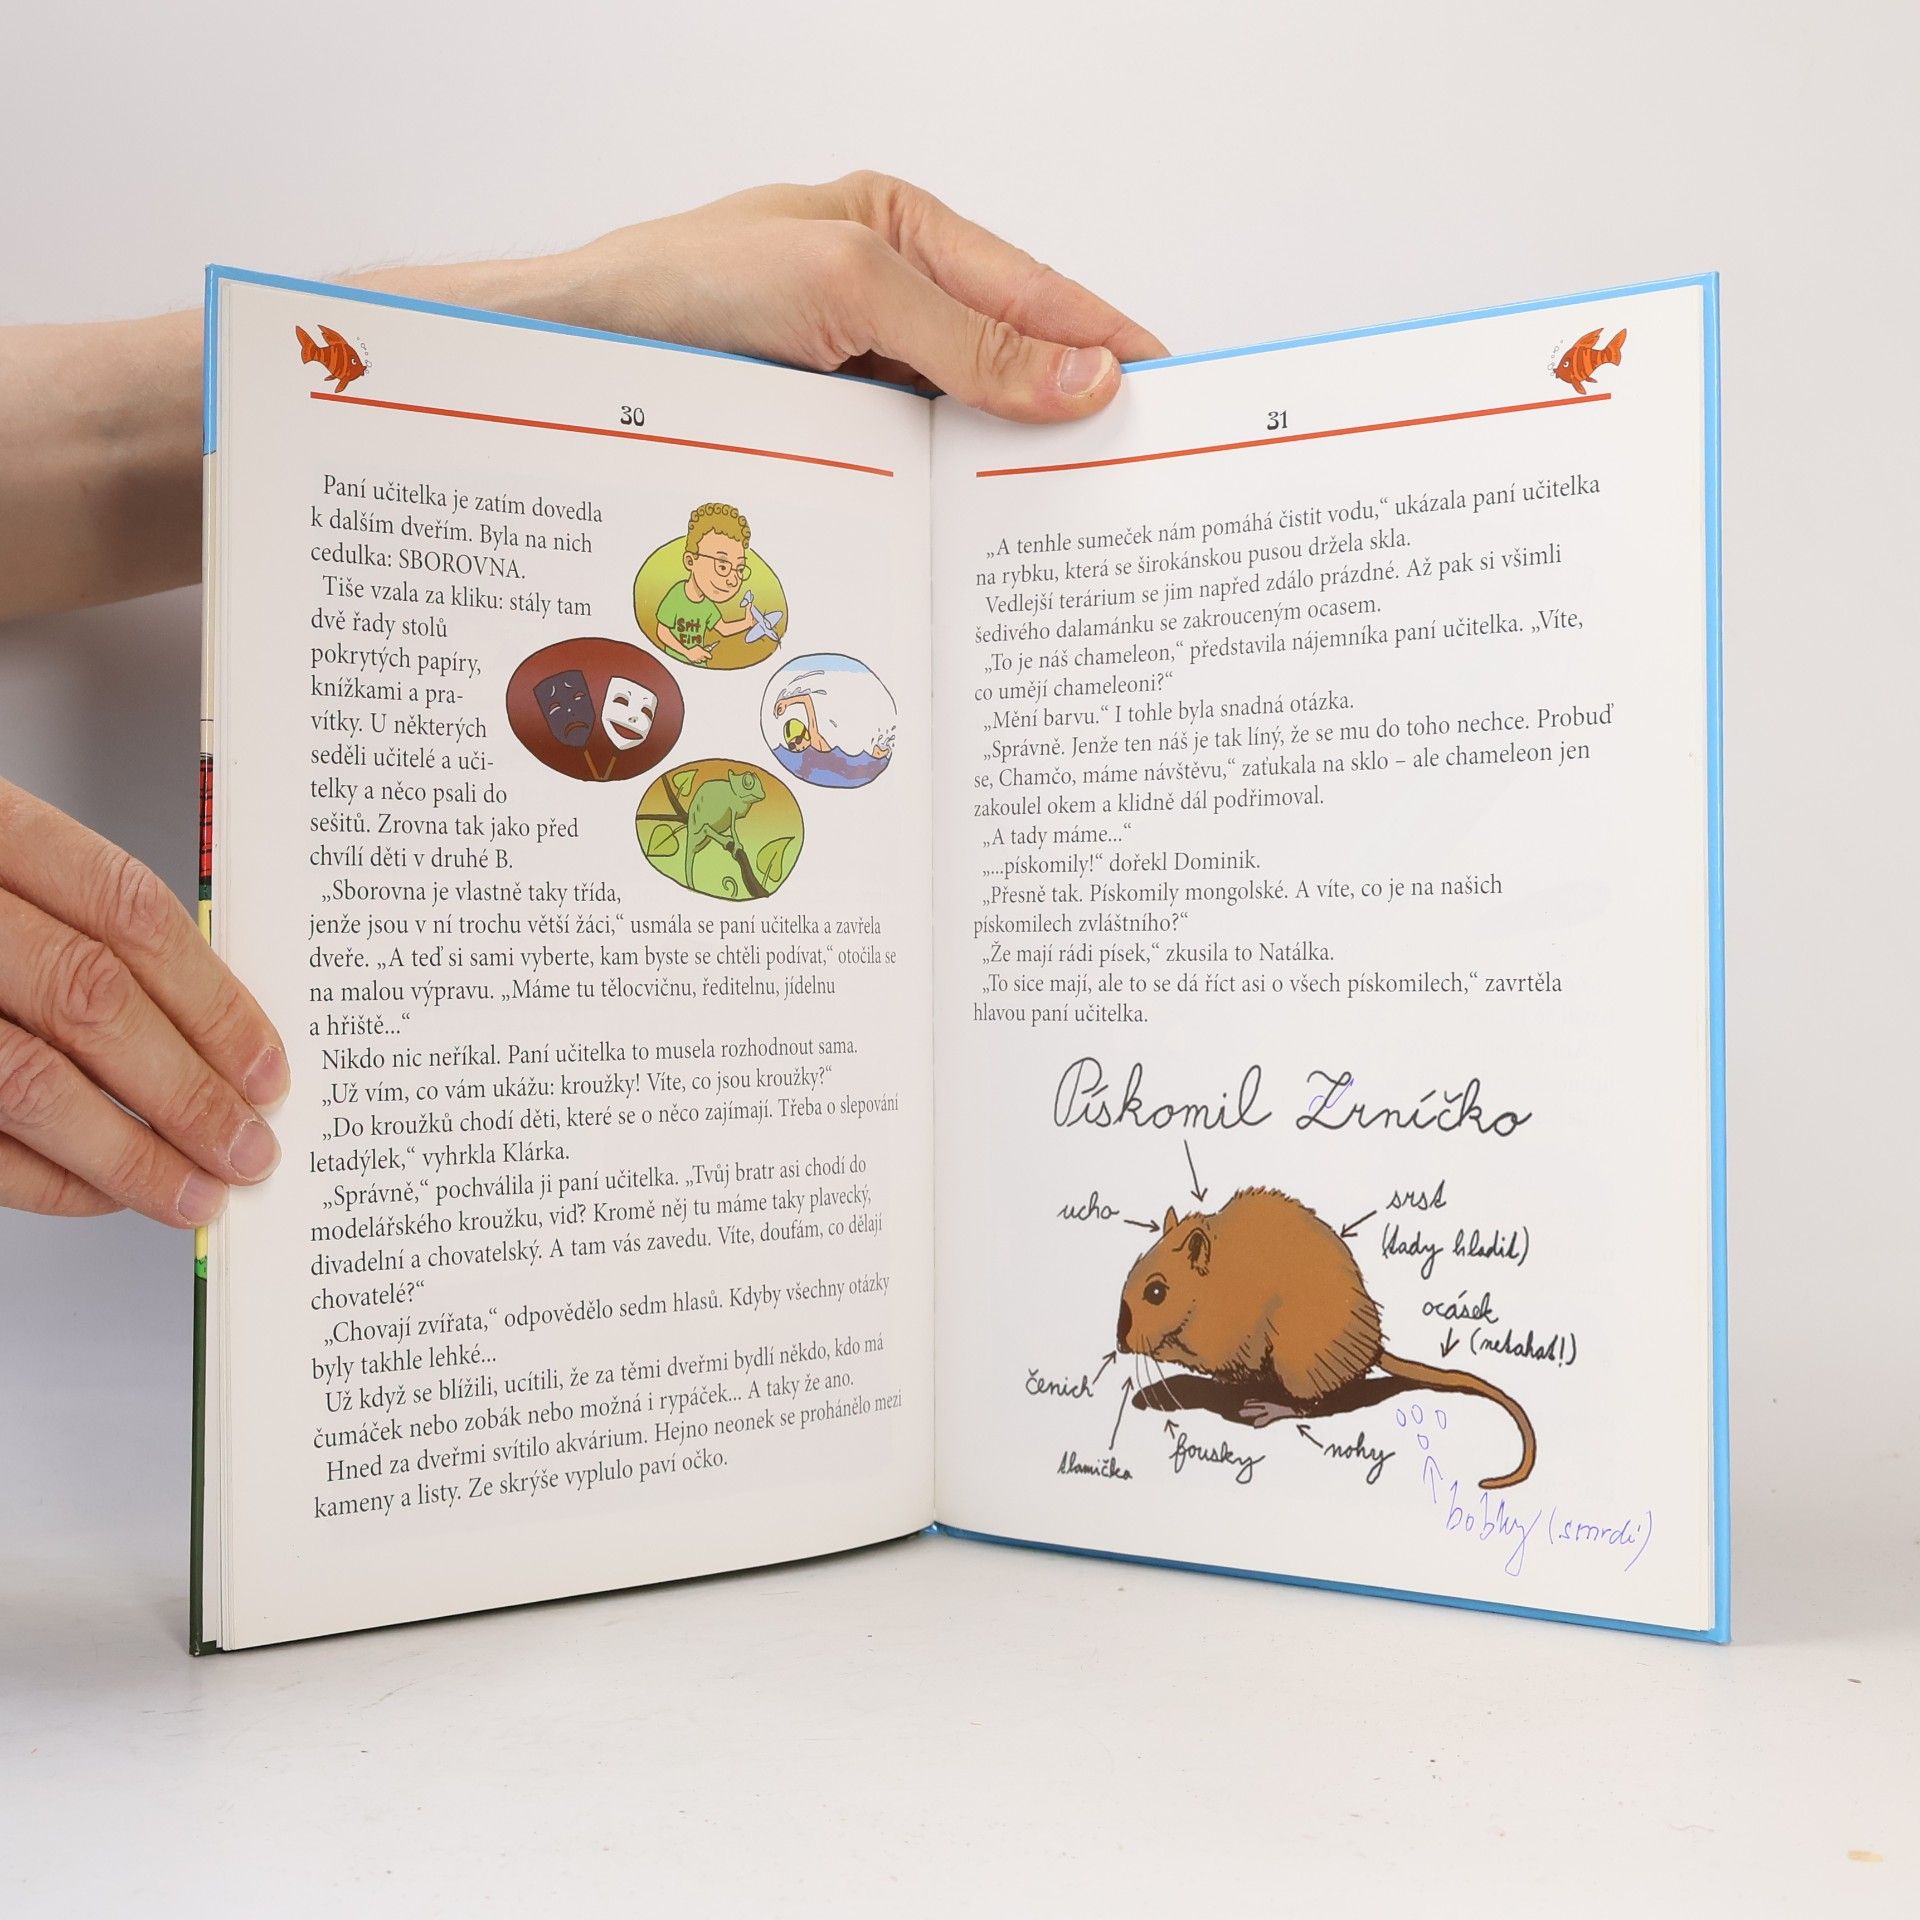 30
Paní učitelka je zatím dovedla
k dalším dveřím. Byla na nich
cedulka: SBOROVNA.
Tiše vzala za kliku: stály tam
dvě řady stolů
pokrytých papíry,
knížkami a pra-
vítky. U některých
seděli učitelé a uči-
telky a něco psali do
sešitů. Zrovna tak jako před
chvílí děti v druhé B.
„Sborovna je vlastně taky třída,
jenže jsou v ní trochu větší žáci,“ usmála se paní učitelka a zavřela
dveře. „A teď si sami vyberte, kam byste se chtěli podívat,“ otočila se
na malou výpravu. „Máme tu tělocvičnu, ředitelnu, jídelnu
a hřiště...“
Nikdo nic neříkal. Paní učitelka to musela rozhodnout sama.
„Už vím, co vám ukážu: kroužky! Víte, co jsou kroužky?“
„Do kroužků chodí děti, které se o něco zajímají. Třeba o slepování
letadýlek,“ vyhrkla Klárka.
„Správně,“ pochválila ji paní učitelka. „Tvůj bratr asi chodí do
modelářského kroužku, viď? Kromě něj tu máme taky plavecký,
divadelní a chovatelský. A tam vás zavedu. Víte, doufám, co dělají
chovatelé?“
„Chovají zvířata,“ odpovědělo sedm hlasů. Kdyby všechny otázky
byly takhle lehké...
Už když se blížili, ucítili, že za těmi dveřmi bydlí někdo, kdo má
čumáček nebo zobák nebo možná i rypáček... A taky že ano.
Hned za dveřmi svítilo akvárium. Hejno neonek se prohánělo mezi
kameny a listy. Ze skrýše vyplulo paví očko.
Spit
Fire
31
„A tenhle sumeček nám pomáhá čistit vodu,“ ukázala paní učitelka
na rybku, která se širokánskou pusou držela skla.
Vedlejší terárium se jim napřed zdálo prázdné. Až pak si všimli
šedivého dalamánku se zakrouceným ocasem.
„To je náš chameleon,“ představila nájemníka paní učitelka. „Víte,
co umějí chameleoni?“
„Mění barvu.“ I tohle byla snadná otázka.
„Správně. Jenže ten náš je tak líný, že se mu do toho nechce. Probuď
se, Chamčo, máme návštěvu,“ zaťukala na sklo – ale chameleon jen
zakoulel okem a klidně dál podřimoval.
„A tady máme...“
„...pískomily!“ dořekl Dominik.
„Přesně tak. Pískomily mongolské. A víte, co je na našich
pískomilech zvláštního?“
„Že mají rádi písek,“ zkusila to Natálka.
„To sice mají, ale to se dá říct asi o všech pískomilech,“ zavrtěla
hlavou paní učitelka.
Pískomil Zrníčko
ucho
srst
(tady hladit)
ocásek
(netahat!)
čenich
tlamička
fousky
nohy
bobky (smrdí)